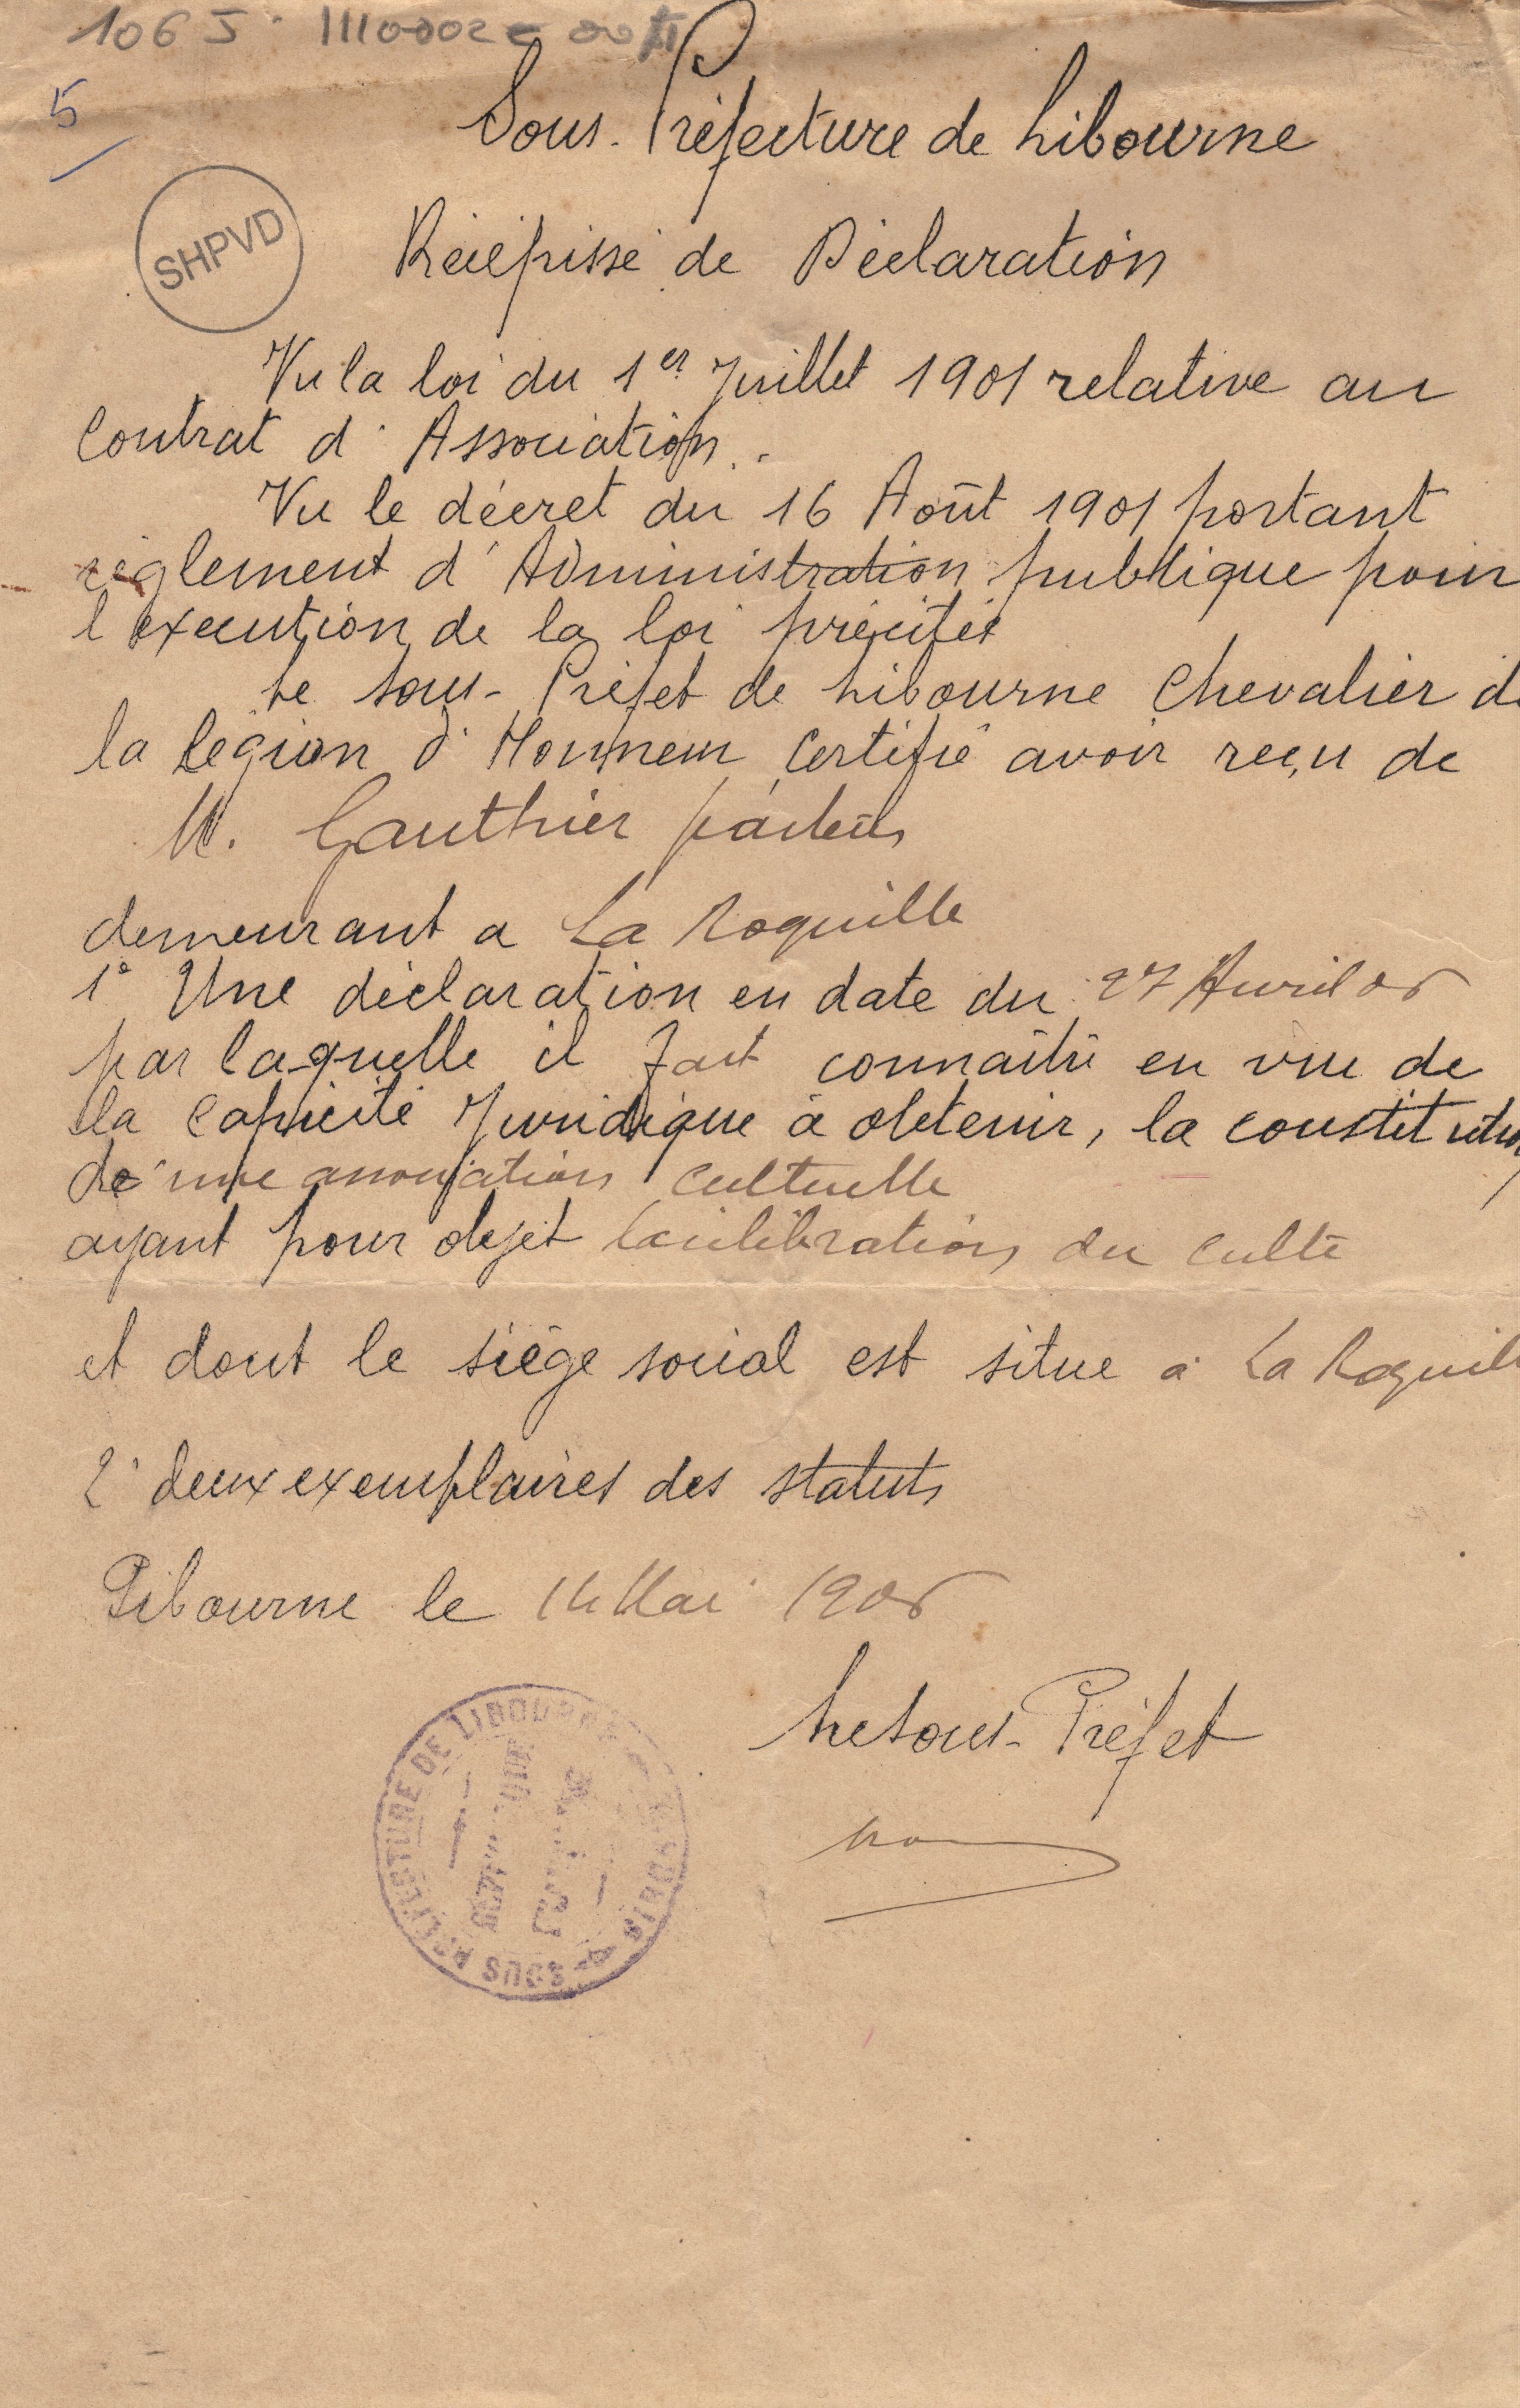 106 J. 1110002-00
5
SHPVD
Sous-Préfecture de Libourne
Récépissé de Déclaration
Vu la loi du 1er Juillet 1901 relative au
Contrat d'Association.
Vu le décret du 16 Août 1901 portant
règlement d'Administration publique pour
l'exécution de la loi précitée
Le Sous-Préfet de Libourne Chevalier de
la Légion d'Honneur certifie avoir reçu de
M. Gauthier
demeurant a La Roquille
1° Une déclaration en date du 27 Avril 06
par laquelle il fait connaître en vue de
la capicité Juridique à obtenir, la constitution
de une association cultuelle
ayant pour objet la célébration du culte
et dont le siège social est situe à La Roquille
2° deux exemplaires des statuts
Libourne le 14 Mai 1906
Le Sous-Préfet
SOUS PRÉFECTURE DE LIBOURNE